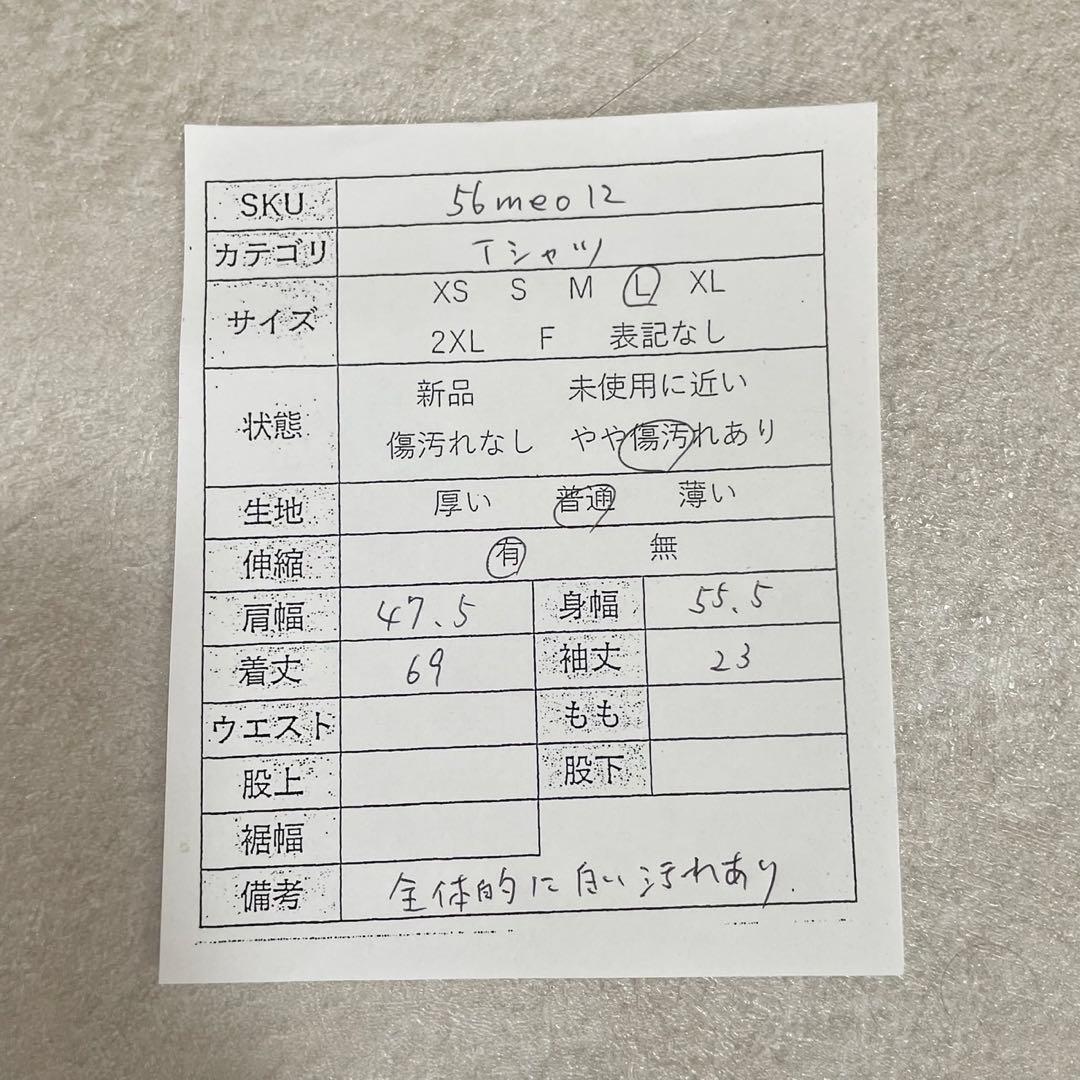 SKU 56meo12
カテゴリ Tシャツ
サイズ XS S M L XL
2XL F 表記なし
状態 新品 未使用に近い
傷汚れなし やや傷汚れあり
生地 厚い 普通 薄い
伸縮 有 無
肩幅 47.5 身幅 55.5
着丈 69 袖丈 23
ウエスト もも
股上 股下
裾幅
備考 全体的に白い汚れあり.